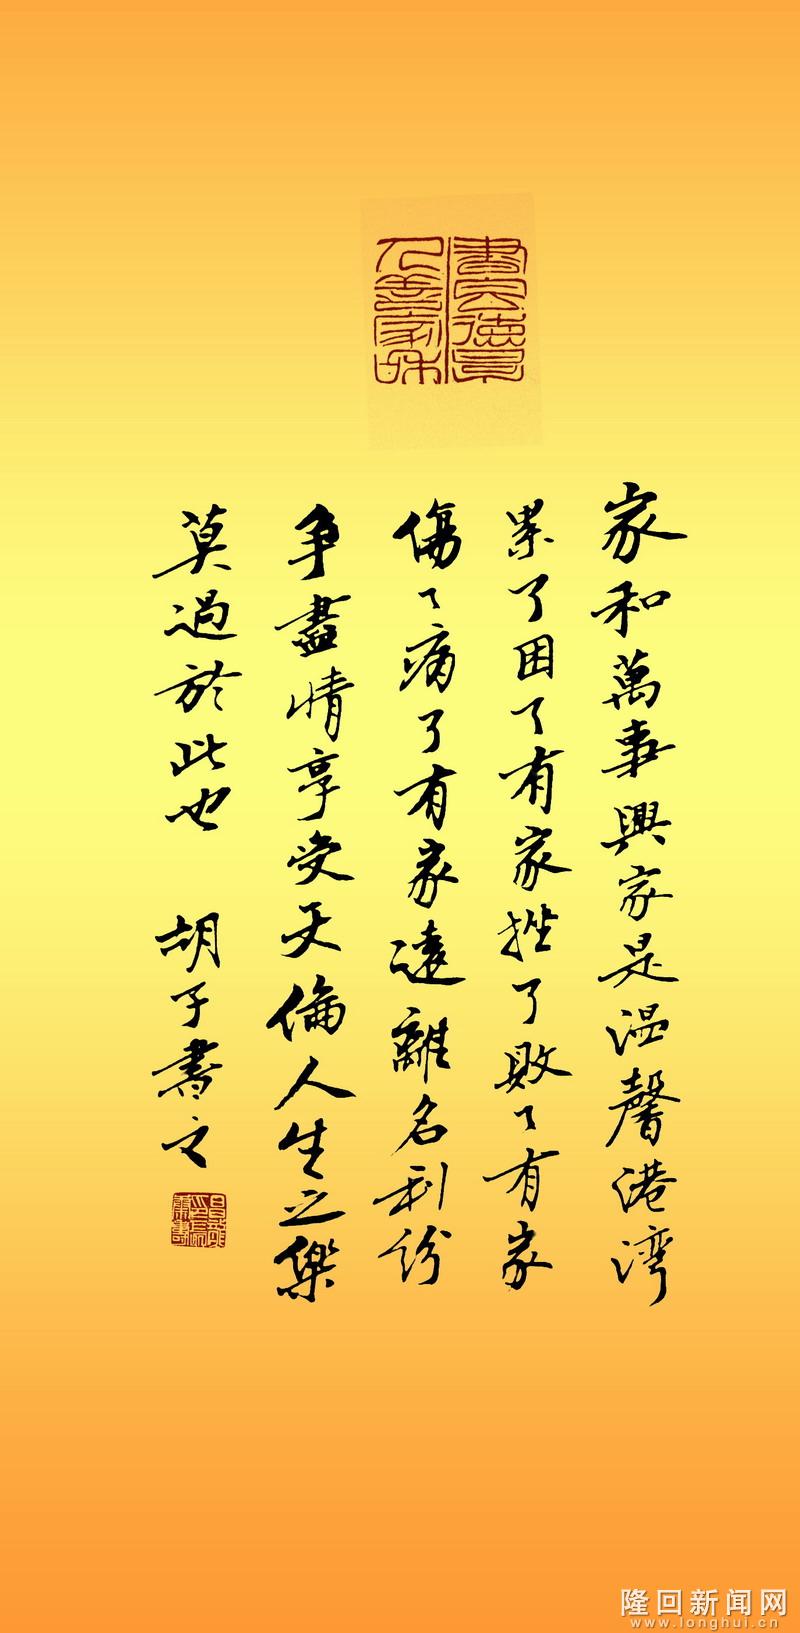 家和萬事興家是温馨港湾
累了困了有家挫了敗了有家
傷了痛了有家遠離名利纷
争盡情享受天倫人生之樂
莫過於此也 胡子書文
隆回新闻网
www.longhui.cn